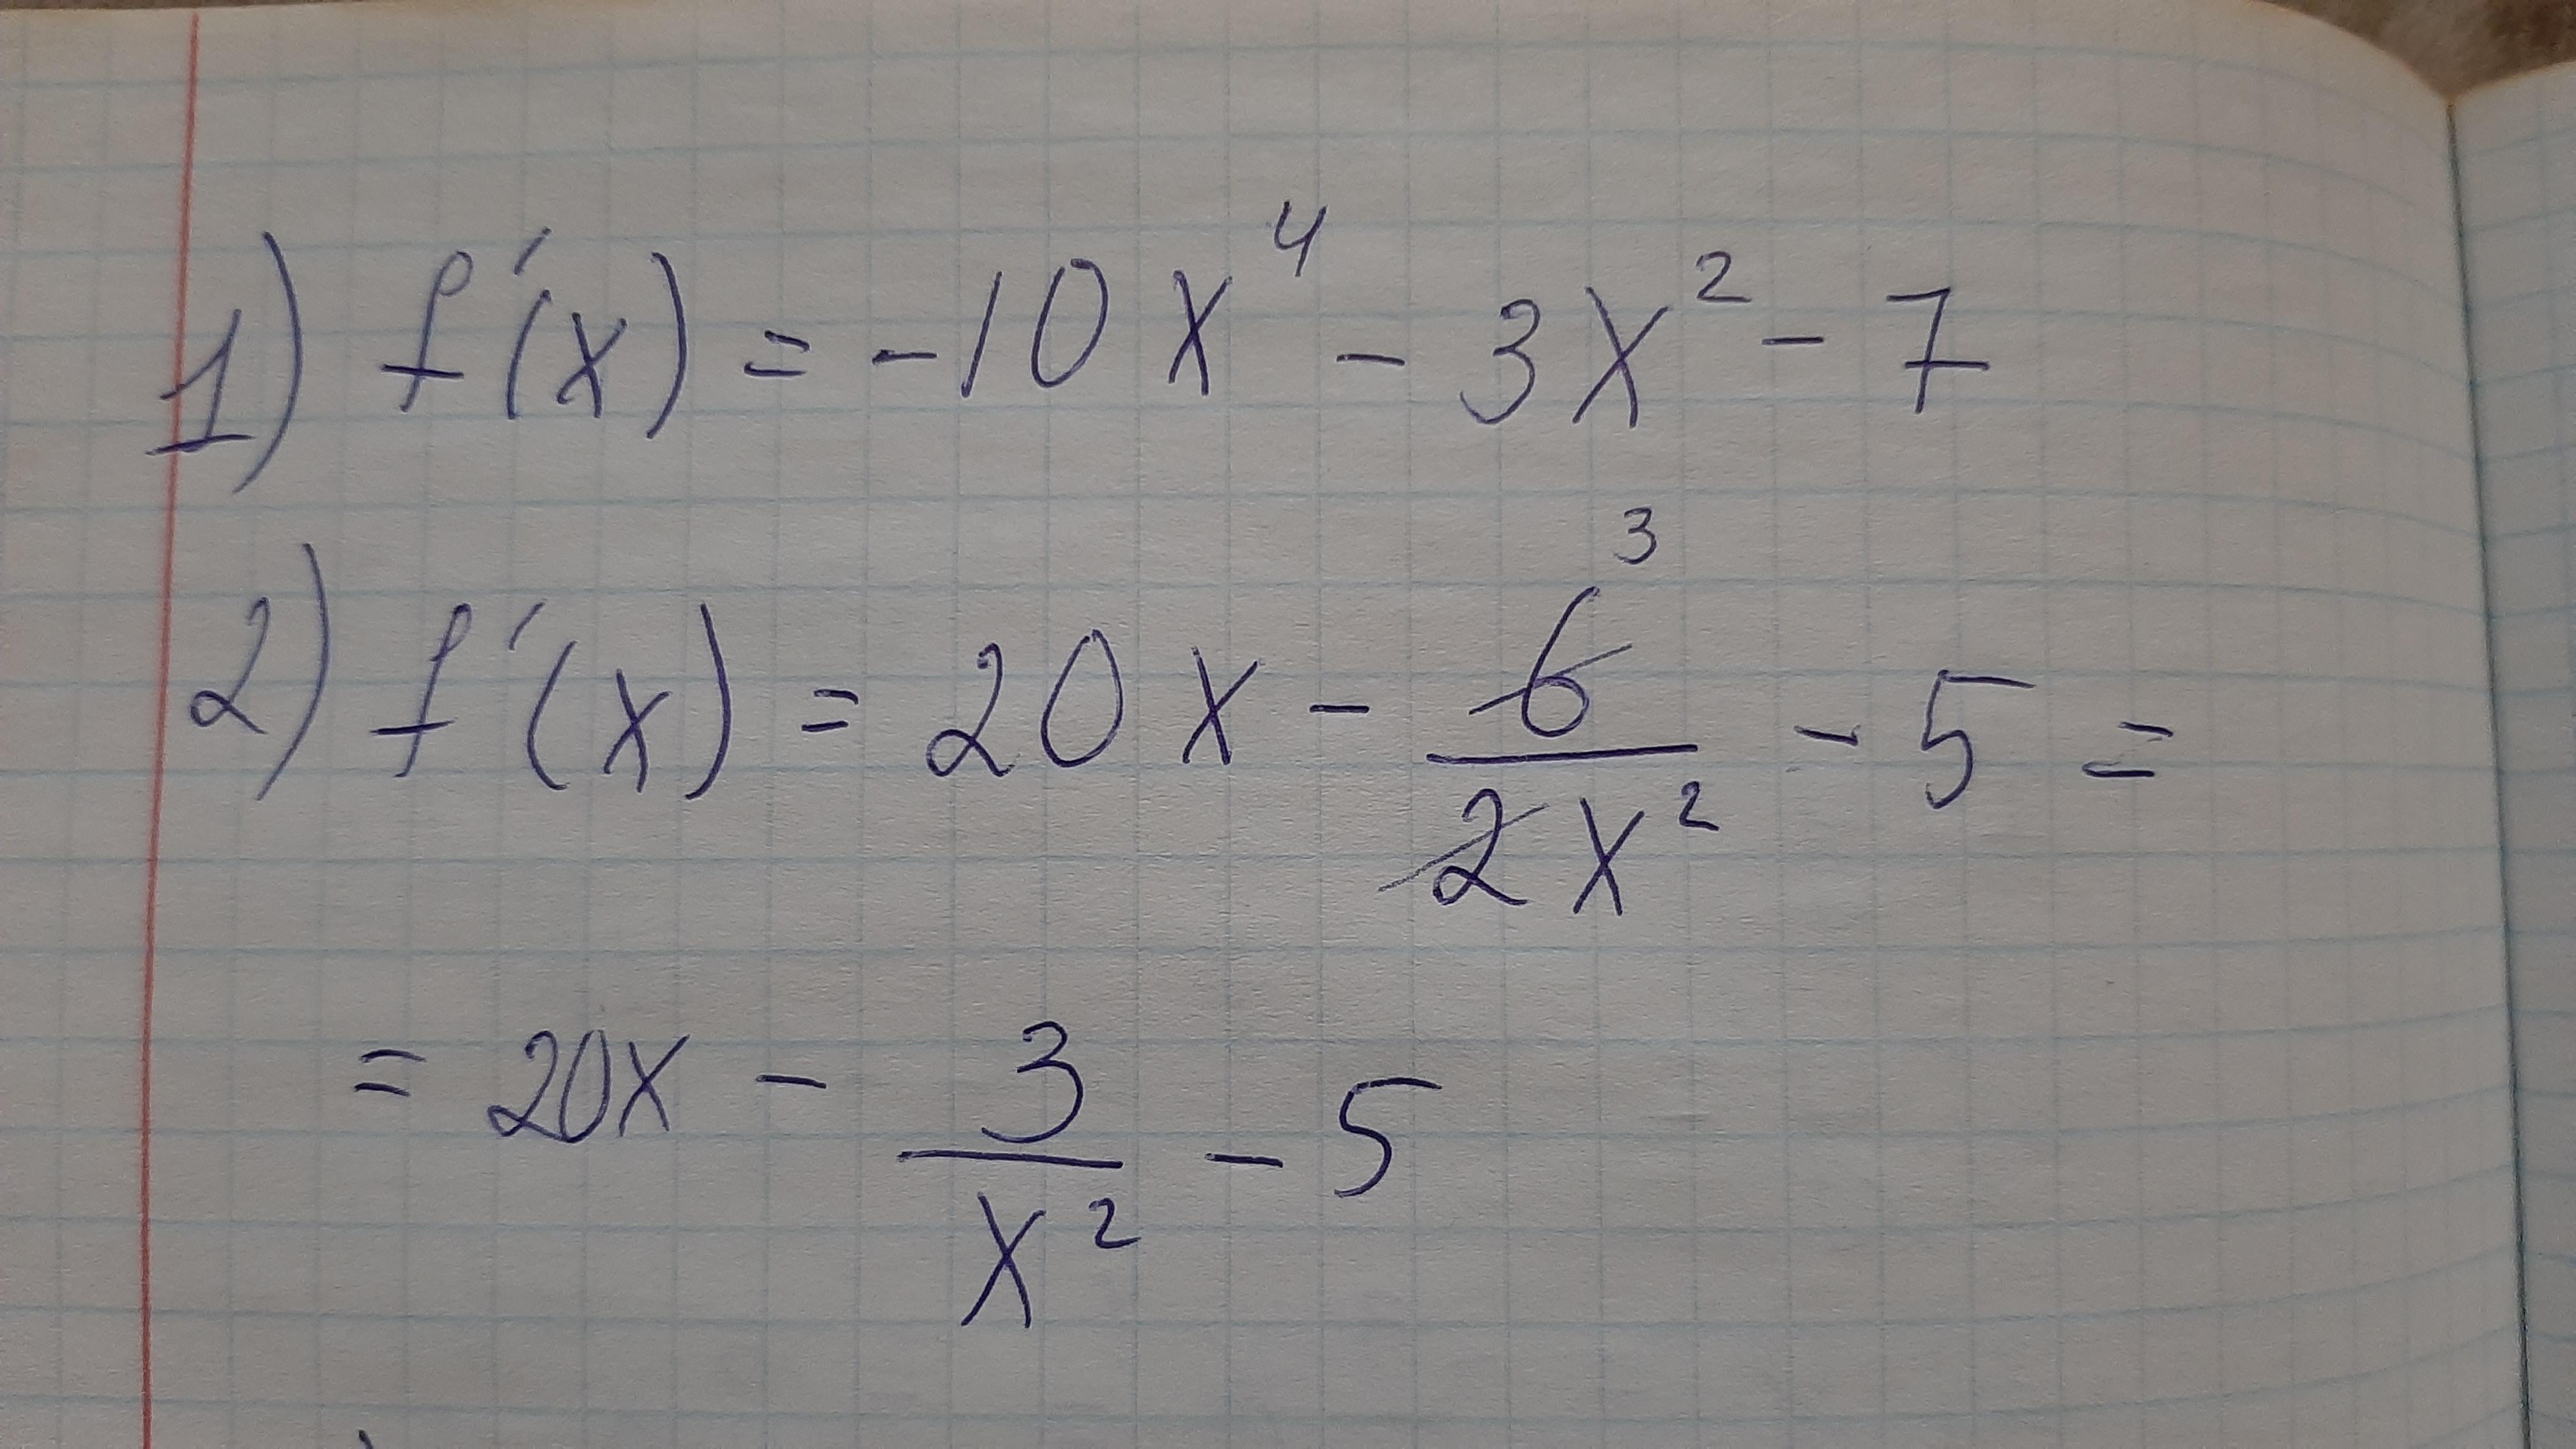 1) f'(x) = -10x⁴ - 3x² - 7
2) f'(x) = 20x - 6³/2x² - 5 =
= 20x - 3/x² - 5